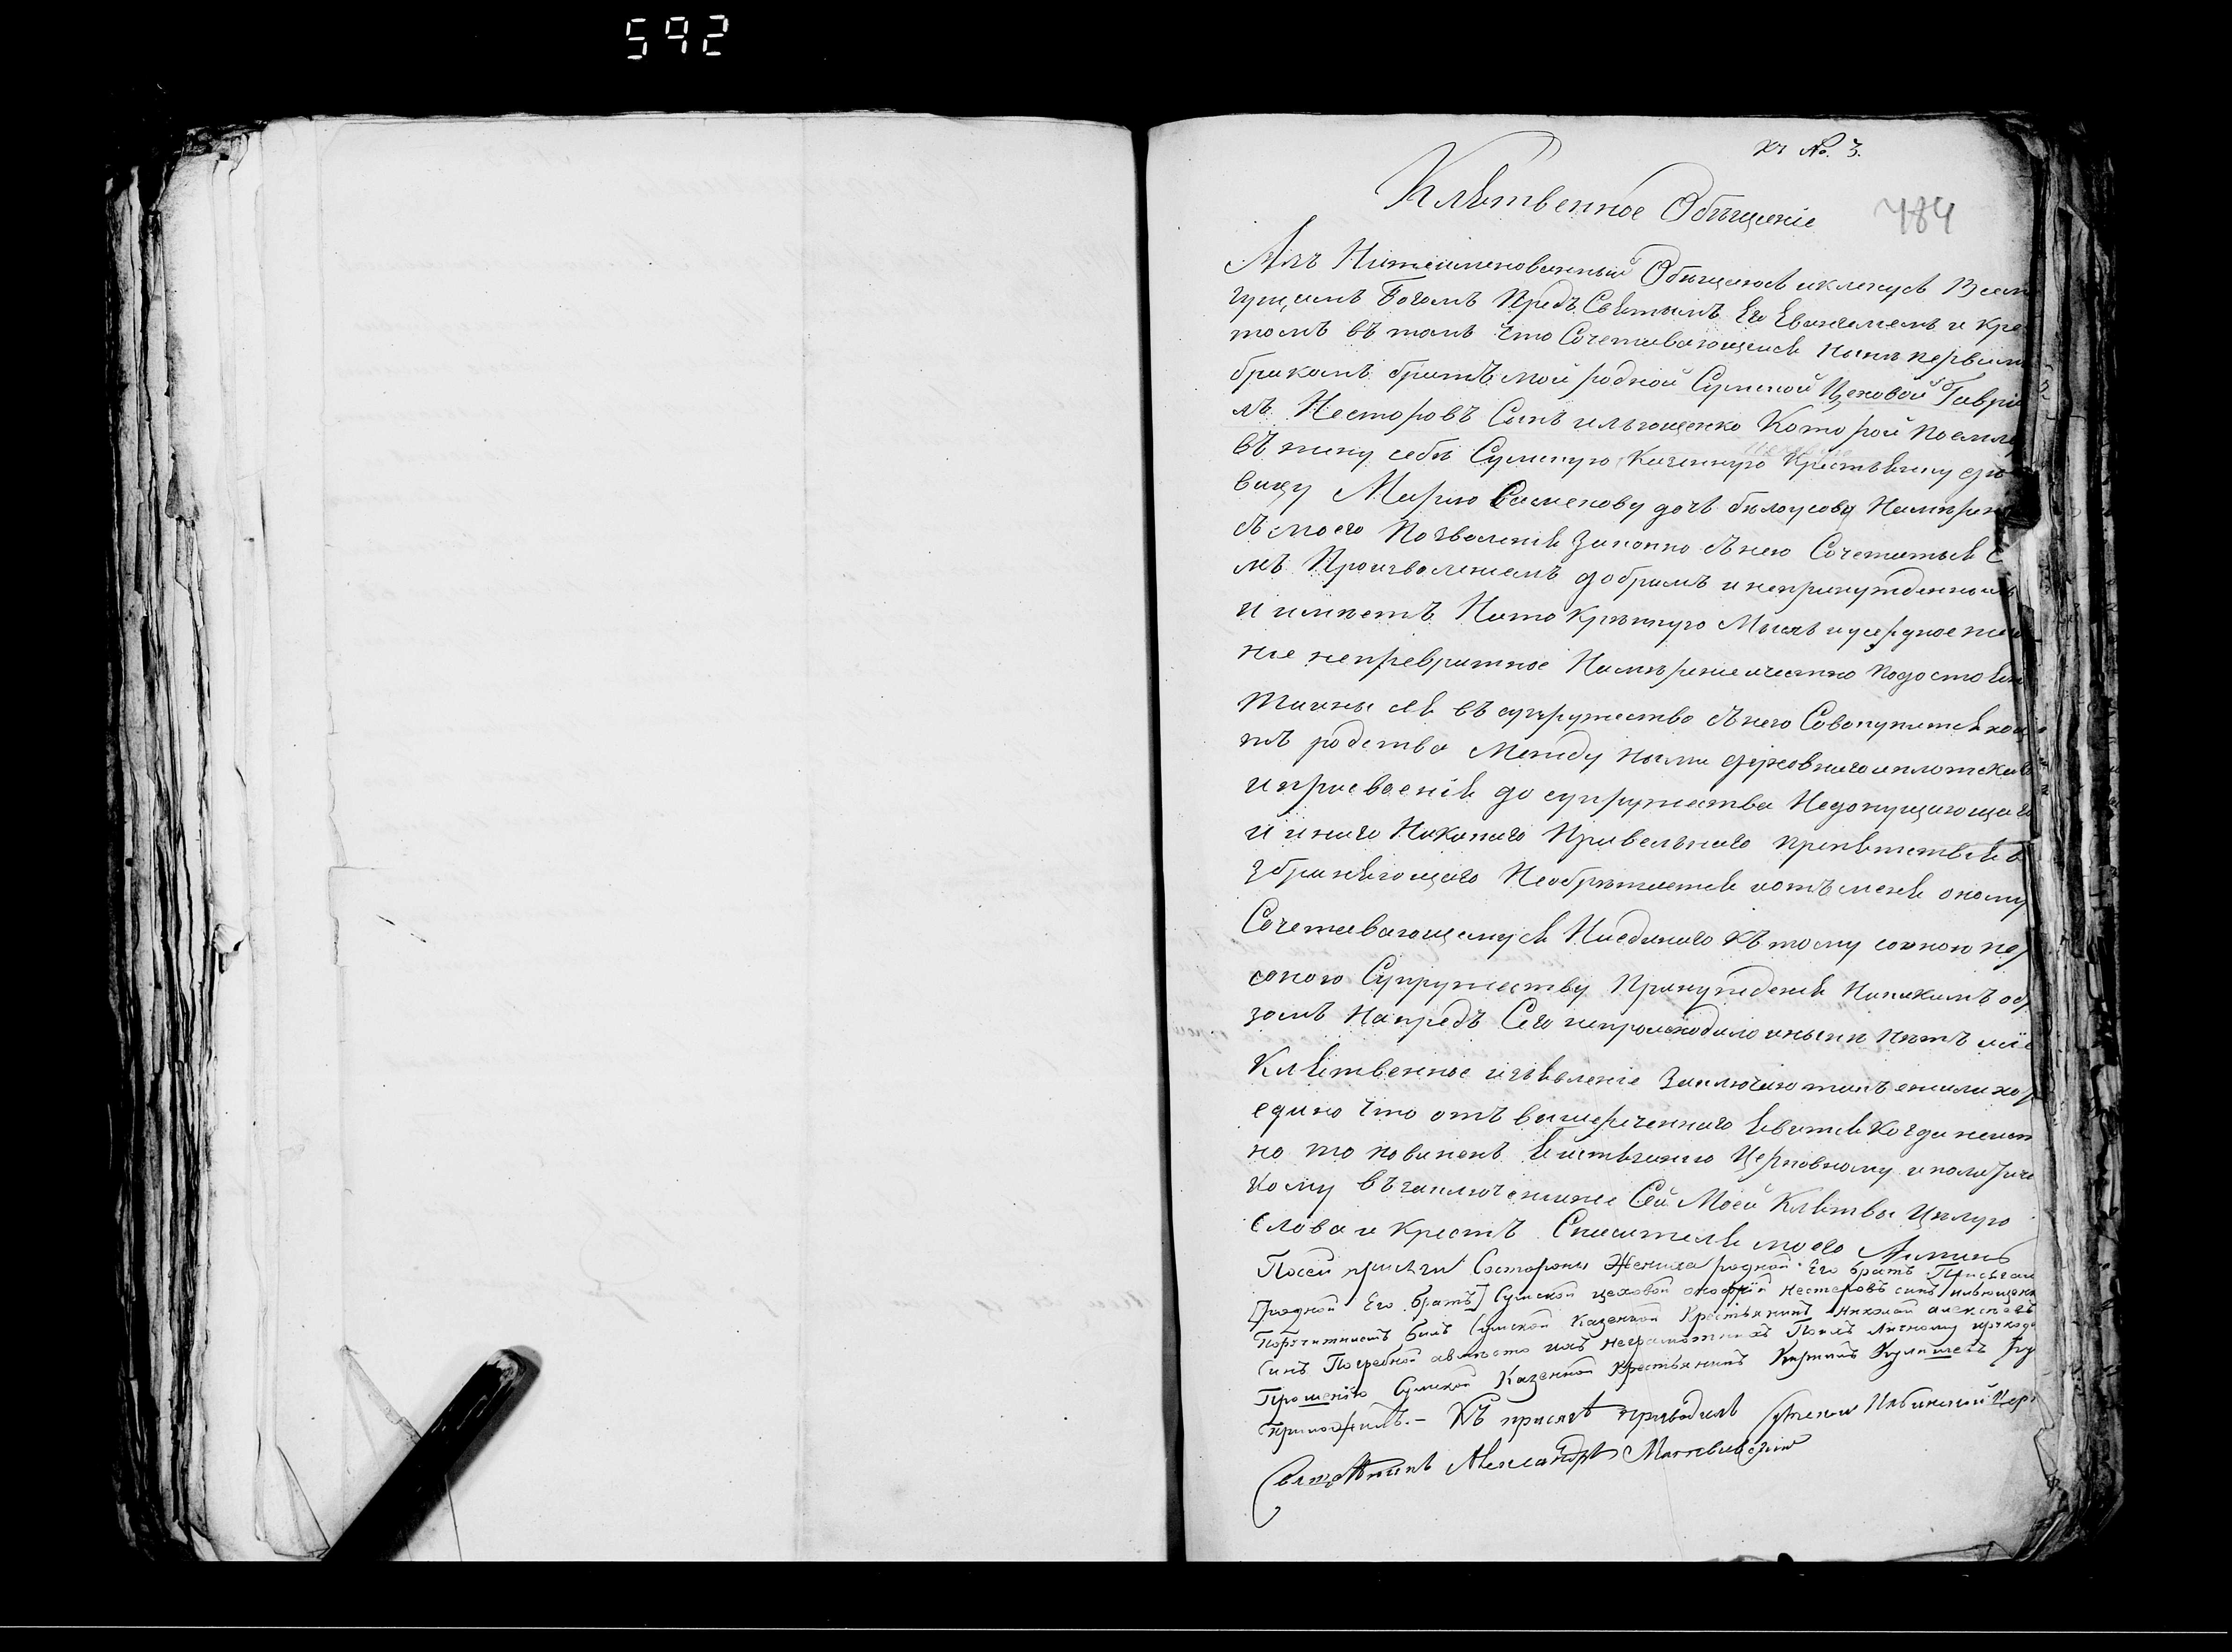 592
къ №. 3.
Клятвенное Обѣщеніе
484
Азъ Нижеименованный Обѣщаюся и кленуся Всем
гущимъ Богомъ Предъ Святымъ Его Евангелемъ и Кре
томъ въ томъ Что Сочетавающися нынѣ первым
бракомъ братъ мой родной Сумской Цеховой Гаври
лъ Несторовъ Сынъ ильющенко Которой поемле
въ жену себѣ Сумскую Казенную Крестьянку дѣ
вицу Марию Семенову дочь билоусову Намѣрен
съ моего Позволенія Законно съ нею Сочетаться С
мъ Произволениемъ добрымъ и непринужденнымъ
и имѣетъ На то Крѣпкую Мысль и усердное же
ние непревратное Намѣрение и честно по достоян
Тайны ся въ супружество съ нею Совокупится
тъ родства Между ными духовнаго и плотскаго
и присвоенія до супружества Недопущающаго
и инаго Никакаго Правельнаго препятствія в
збраняющаго Необрѣтается и отъ меня оному
Сочетавающемуся Ниединаго къ тому
соною Супружеству Принужденія Никакимъ об
зомъ Напредъ Сего непроисходило и нынѣ Нѣтъ и сïе
Клятвенное изъявленіе Заключаю такъ ежели хо
едино Что отъ вышереченнаго явится Когда неист
но то повиненъ Церковному и
кому въ заключение же Сей Моей Клятвы Цѣлую
Слова и Крестъ Спасителя моего Аминь
По сей присяги Состороны Жениха родной Его братъ Присягал
[родной Его братъ] Сумской цеховой онофрïй Нестеровъ синъ ильющенк
билъ Сумской Казенной Крестьянинъ Николай алексѣевъ
Синъ Погребной авмѣсто ихъ неграмотнихъ Поихъ Личному
Прошенïю Сумской Казенной Крестьянинъ ру
приложилъ.– Къ присягѣ приводилъ Цер
Священникъ Александръ